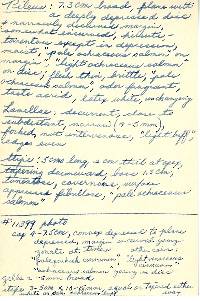 Pileus: 7.5cm broad, plano with
a deeply depressed disc
& narrowly inrolled margin,
somewhat incurved, hirsute-
tomentose except in depression,
moist, "pale ochraceous salmon" on
margin - "light ochraceous salmon"
on disc; flesh thin, brittle, "pale
ochraceous salmon", odor fragrant,
taste acrid, latex white, unchanging
Lamellae: decurrent, close to
subdistant, narrow (4-5mm),
forked, not intervenose, "light buff",
edges even
Stipe: 5cm long, 2 cm thick at apex,
tapering downward, base 1.5cm,
cavernous, surface
appressed fibrillose, "pale ochraceous
salmon"
#11399 photo
cap 4-7.5cm, convex depressed to plano
depressed, margin incurved young
"pale pinkish cinnamon" "light ochraceous
salmon"
"ochraceous salmon" young in disc
gills 2-4 mm broad
stipe 3-5cm x 10-15mm, equal or tapered either
way